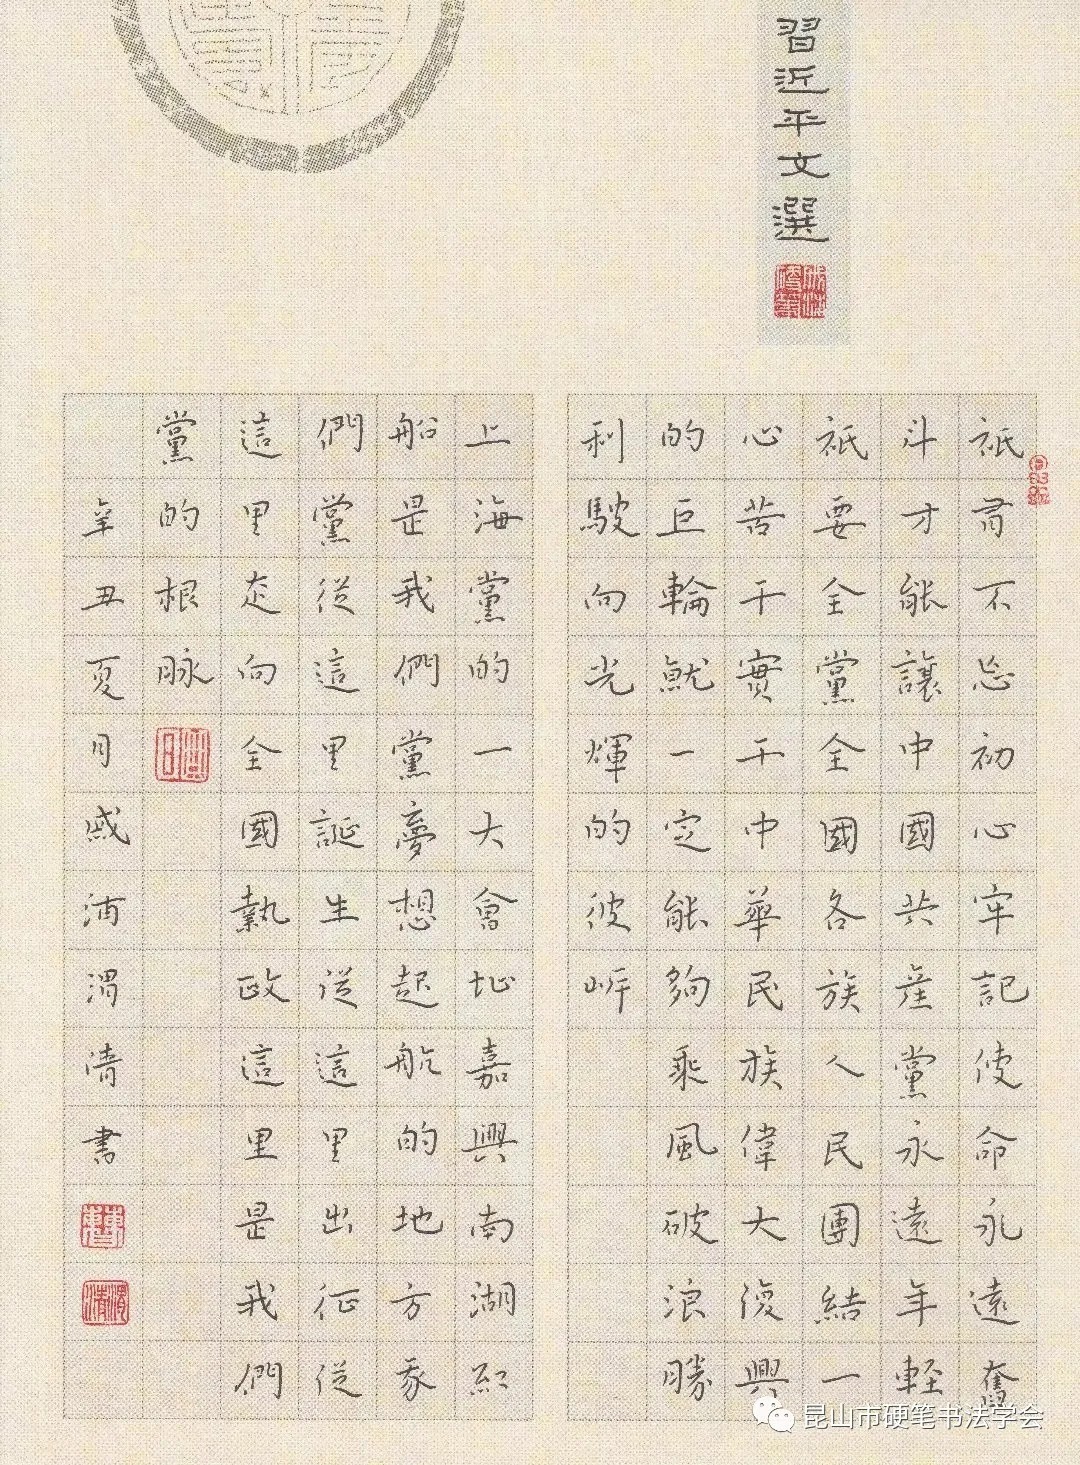 習近平文選
祇有不忘初心牢記使命永遠奮
斗才能讓中國共產黨永遠年輕
祇要全黨全國各族人民團結一
心苦干實干中華民族偉大復興
的巨輪就一定能夠乘風破浪勝
利駛向光輝的彼岸
上海黨的一大會址嘉興南湖紅
船是我們黨夢想起航的地方我
們黨從這里誕生從這里出征從
這里走向全國執政這里是我們
黨的根脉
辛丑夏月戚浦渭清書
昆山市硬笔书法学会